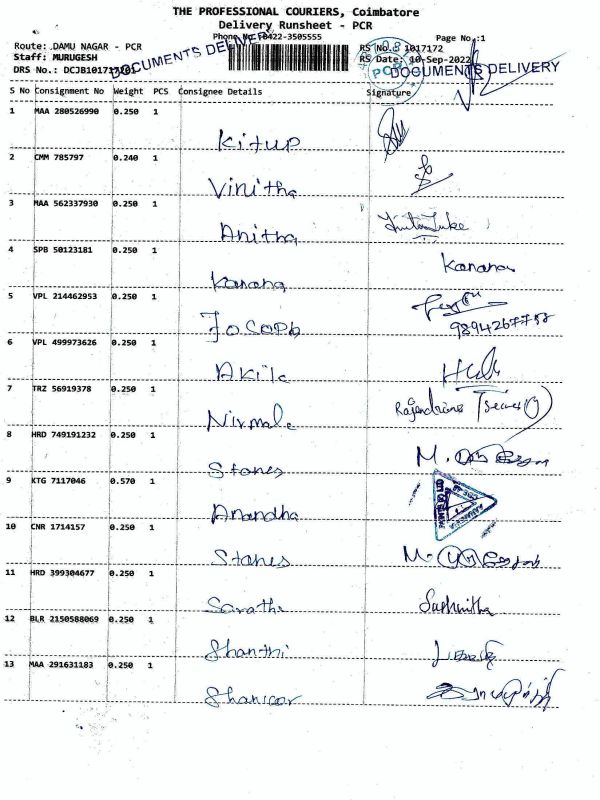 THE PROFESSIONAL COURIERS, Coimbatore
Delivery Runsheet - PCR
Phone No :0422-3505555
Page No.:1
Route: DAMU NAGAR - PCR
RS No.: 1017172
Staff: MURUGESH
RS Date: 10-Sep-2022
DOCUMENTS DELIVERY
DOCUMENTS DELIVERY
DRS No.: 
S No Consignment No Weight PCS Consignee Details Signature
1 MAA 280526990 0.250 1
Kitup
2 CMM 785797 0.240 1
Vinitha
3 MAA 562337930 0.250 1
Anitha
4 SPB 50123181 0.250 1
Kanana
Kanana
5 VPL 214462953 0.250 1
Jocoph
9894267758
6 VPL 499973626 0.250 1
Akila
7 TRZ 56919378 0.250 1
Nirmala
8 HRD 749191232 0.250 1
Stanes
9 KTG 7117046 0.570 1
Anandha
10 CNR 1714157 0.250 1
Stanes
11 HRD 399304677 0.250 1
Sarathi
12 BLR 2150588069 0.250 1
Shanthi
13 MAA 291631183 0.250 1
Shankar